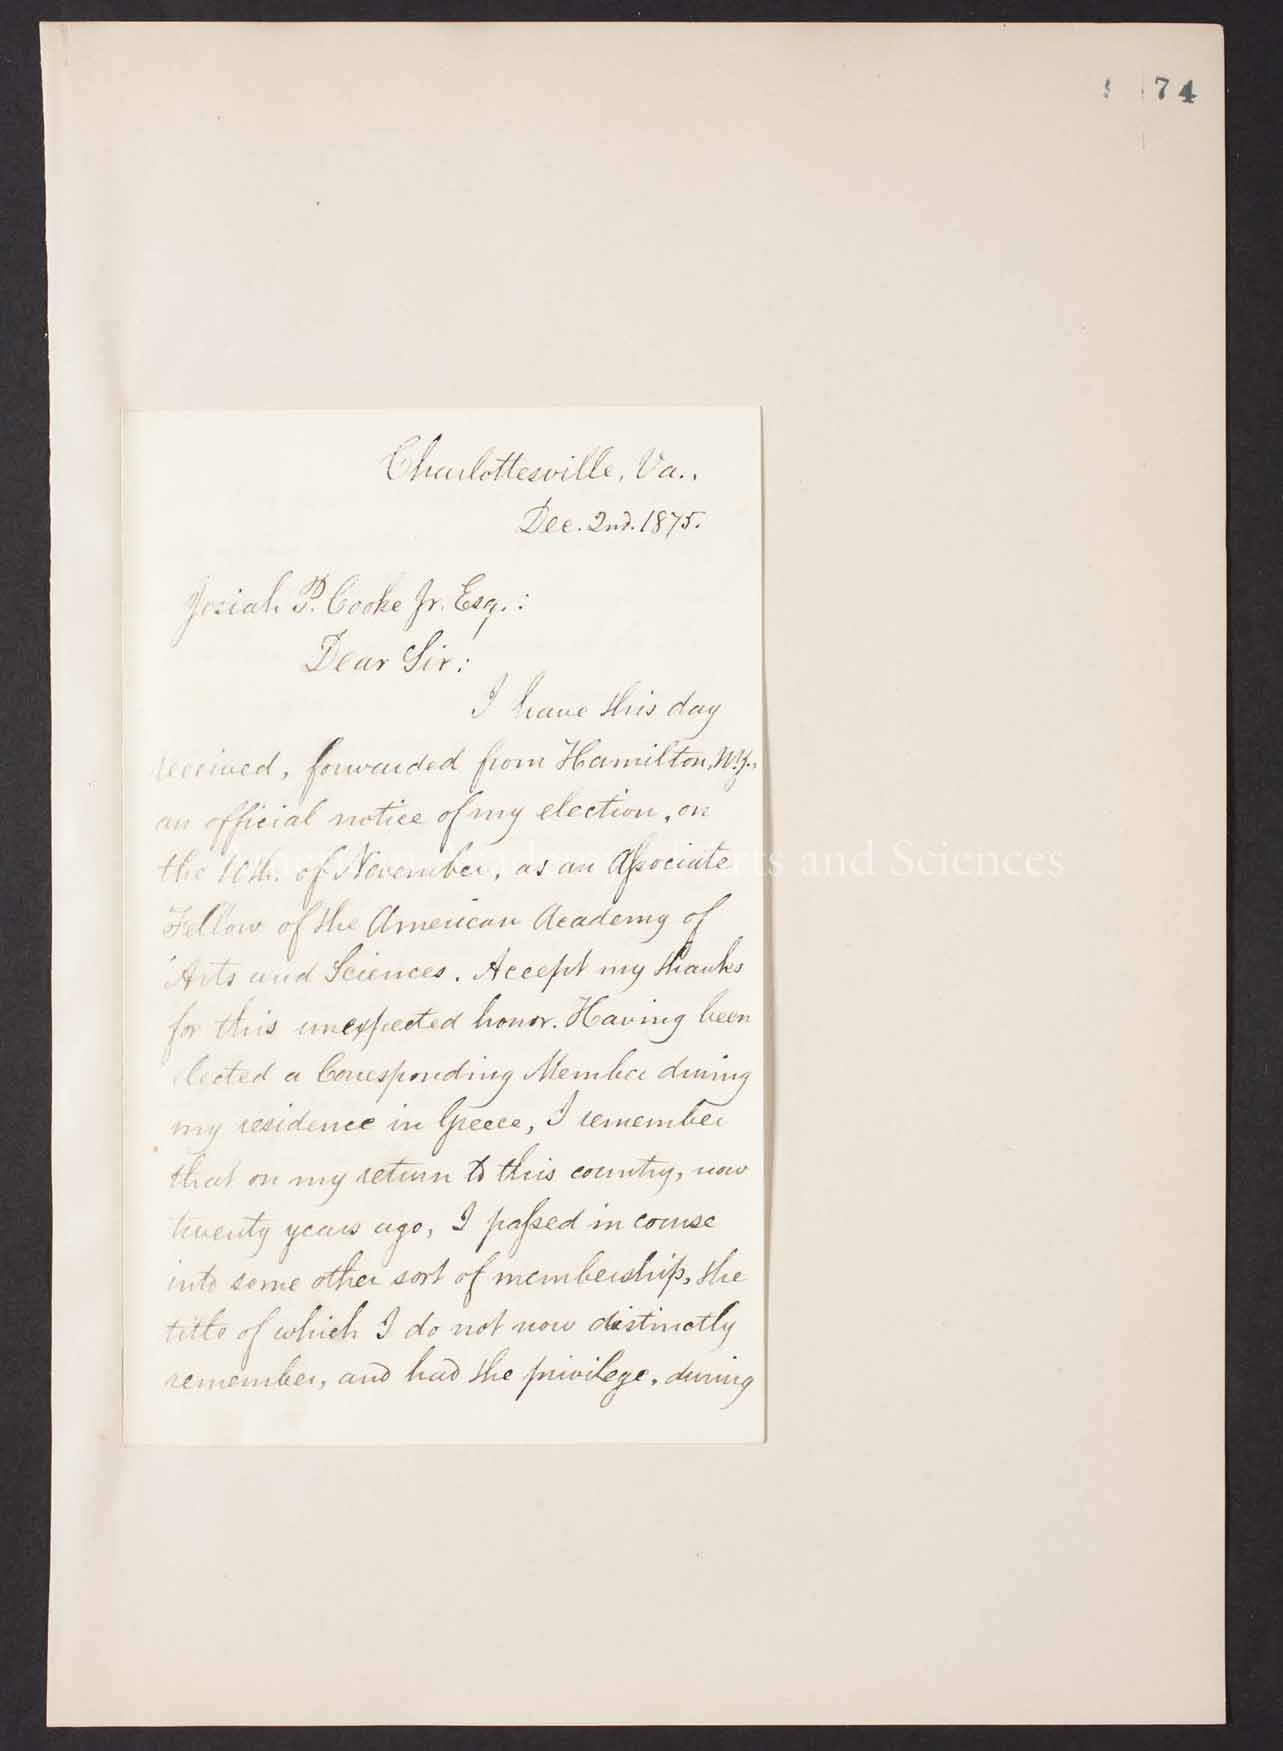 74
Charlottesville, Va.,
Dec. 2nd. 1875.
Josiah P. Cooke Jr. Esq.:
Dear Sir:
I have this day
received, forwarded from Hamilton, N.Y.,
an official notice of my election, on
the 10th. of November, as an Associate
Fellow of the American Academy of
Arts and Sciences. Accept my thanks
for this unexpected honor. Having been
elected a Corresponding Member during
my residence in Greece, I remember
that on my return to this country, now
twenty years ago, I passed in course
into some other sort of membership, the
title of which I do not now distinctly
remember, and had the privilege, during
Arts and Sciences